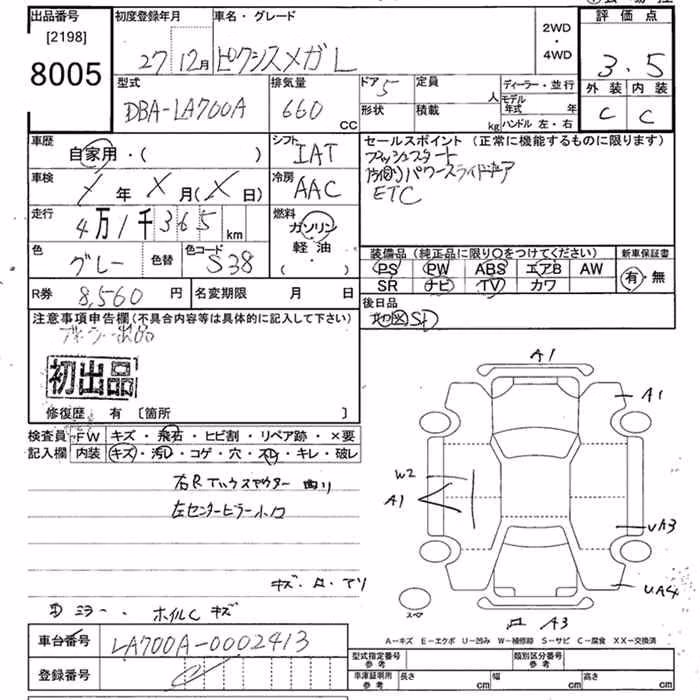 出品番号
[2198]
8005
初度登録年月
27 12月
車名・グレード
ピクシスメガ L
2WD
・
4WD
評価点
3.5
外装 内装
C C
型式
DBA-LA700A
排気量
660
CC
ドア
5
形状
定員
人
積載
kg
ディーラー・並行
モデル年式 年
ハンドル 左・右
車歴
自家用・( )
シフト
IAT
セールスポイント (正常に機能するものに限ります)
プッシュスタート
パワースライドドア
ETC
車検
年 X 月(X 日)
冷房
AAC
走行
4万1千365
km
燃料
ガソリン
軽油
( ・ )
色
グレー
色替
色コード
S38
装備品 (純正品に限り○をつけてください)
PS PW ABS エアB AW
SR ナビ TV カワ
新車保証書
有・無
R券
8,560 円
名変期限 月 日
後日品
地図SD
注意事項申告欄(不具合内容等は具体的に記入して下さい)
初出品
修復歴 有 〔箇所 〕
検査員
記入欄
FW キズ・飛石・ヒビ割・リペア跡・×要
内装 キズ・汚レ・コゲ・穴・スレ・キレ・破レ
右R
曲り
左センターピラー小凹
キズ・凹・テリ
ミラー、ホイルCキズ
A1
A1
W2
A1
UA3
UA4
A3
スペア
A-キズ E-エクボ U-凹み W-補修跡 S-サビ C-腐食 XX-交換済
車台番号
LA700A-0002413
登録番号
型式指定番号
参考
類別区分番号
参考
車庫証明用
参考
長さ cm
幅 cm
高さ cm